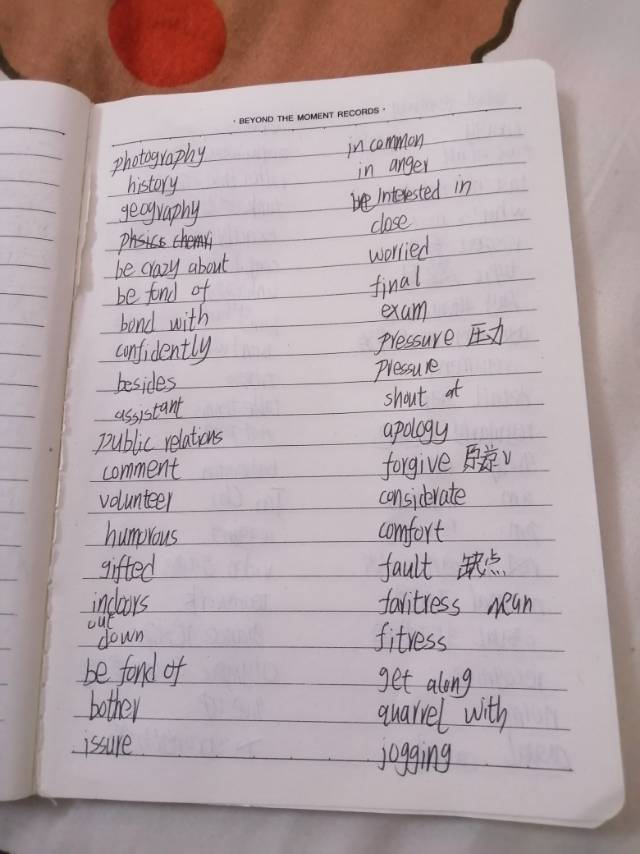 · BEYOND THE MOMENT RECORDS ·
photography
history
geography
phsics chemri
be crazy about
be fond of
bond with
confidently
besides
assistant
public relations
comment
volunteer
humorous
gifted
indoors
out
down
be fond of
bother
issure
in common
in anger
be interested in
close
worried
final
exam
pressure 压力
pressure
shout at
apology
forgive 原谅 v
considerate
comfort
fault 缺点
faritress
fitress
get along
quarrel with
jogging